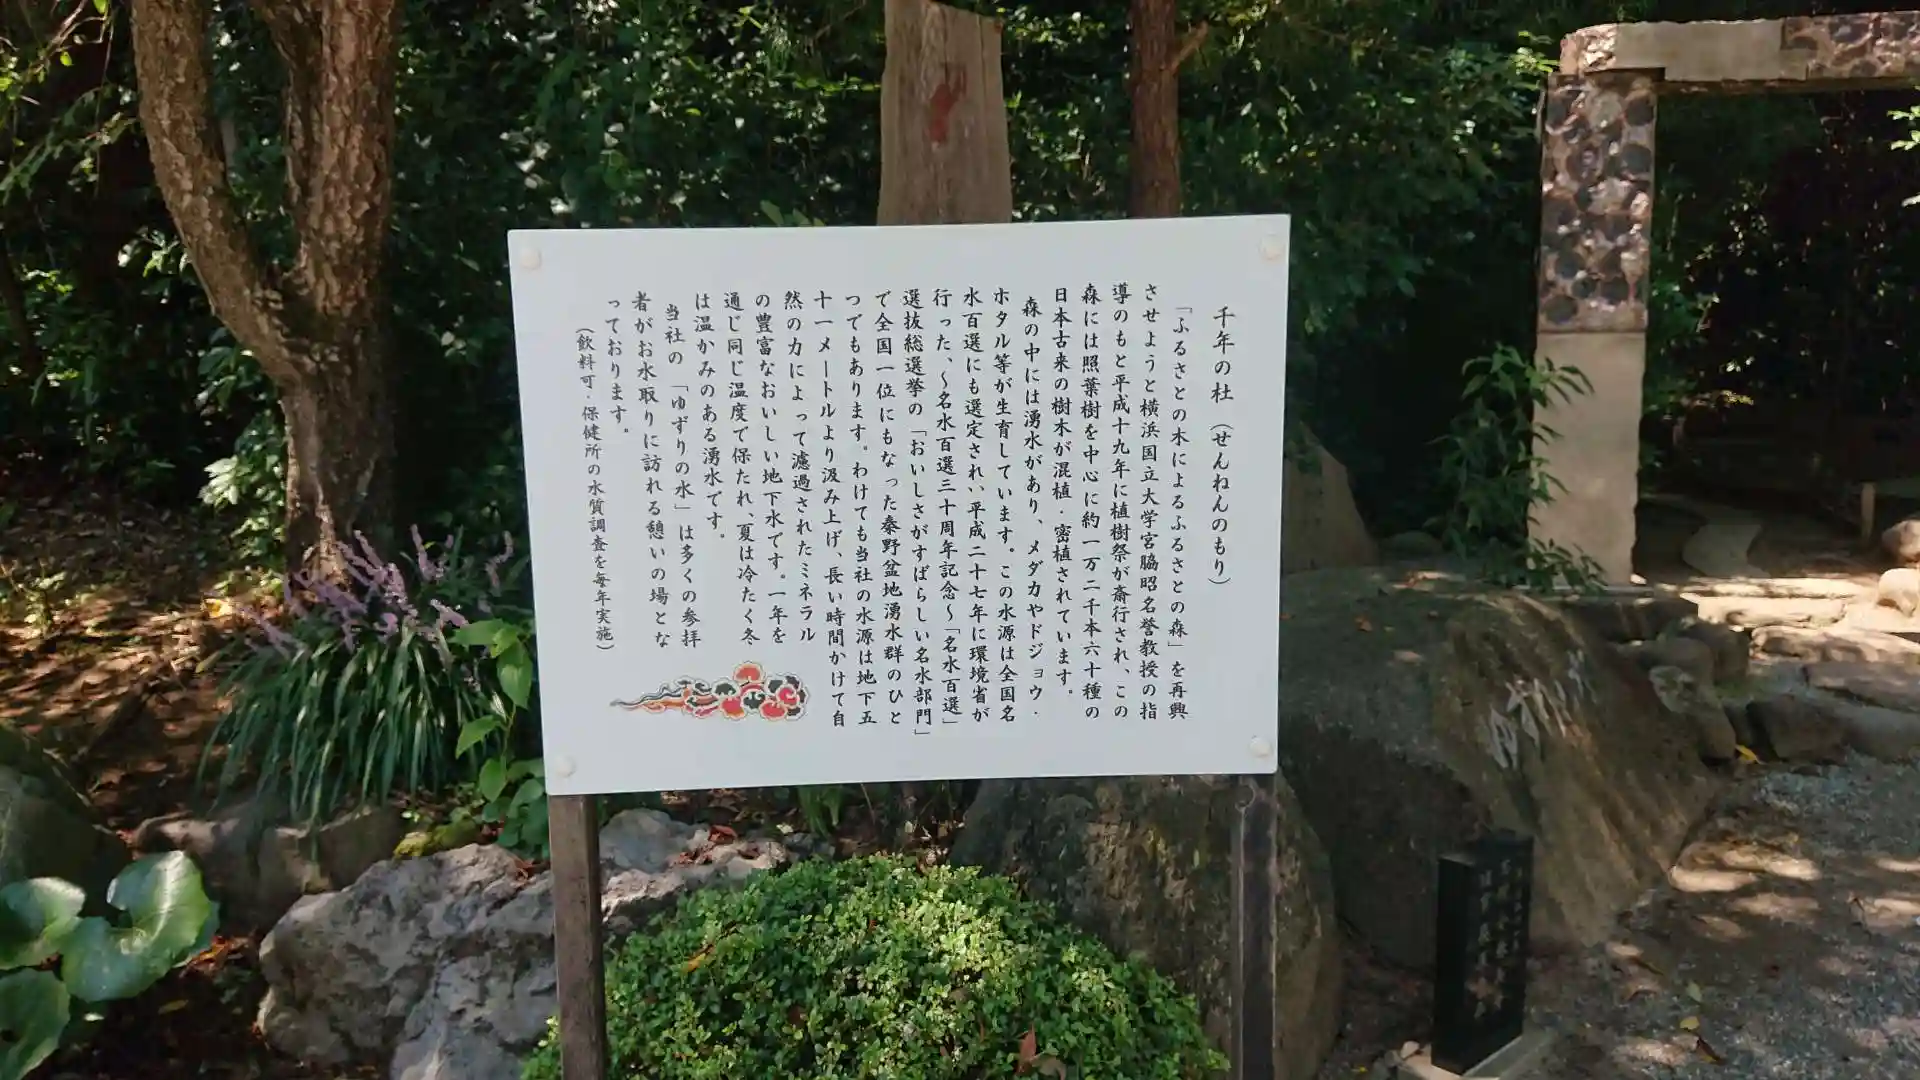 千年の杜（せんねんのもり）
「ふるさとの木によるふるさとの森」を再興
させようと横浜国立大学宮脇昭名誉教授の指
導のもと平成十九年に植樹祭が斎行され、この
森には照葉樹を中心に約一万二千本六十種の
日本古来の樹木が混植・密植されています。
森の中には湧水があり、メダカやドジョウ・
ホタル等が生育しています。この水源は全国名
水百選にも選定され、平成二十七年に環境省が
行った、～名水百選三十周年記念～「名水百選」
選抜総選挙の「おいしさがすばらしい名水部門」
で全国一位にもなった秦野盆地湧水群のひと
つでもあります。わけても当社の水源は地下五
十一メートルより汲み上げ、長い時間かけて自
然の力によって濾過されたミネラル
の豊富なおいしい地下水です。一年を
通じ同じ温度で保たれ、夏は冷たく冬
は温かみのある湧水です。
当社の「ゆずりの水」は多くの参拝
者がお水取りに訪れる憩いの場とな
っております。
（飲料可・保健所の水質調査を毎年実施）